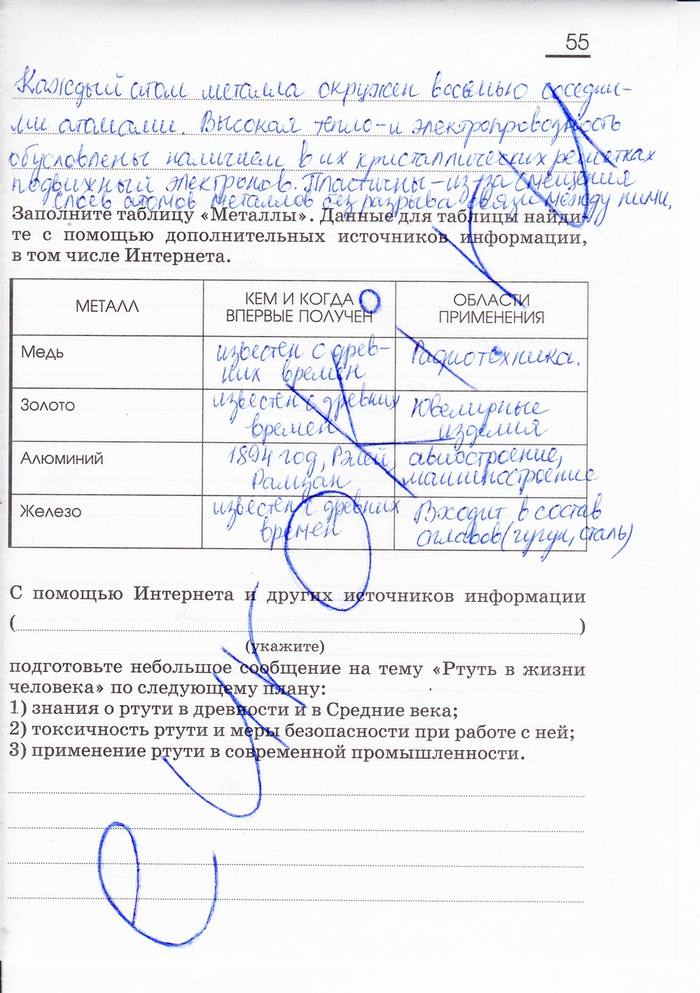 55
Каждый атом металла окружен восемью соседни-
ми атомами. Высокая тепло- и электропроводность
обусловлены наличием в их кристаллических решетках
подвижный электронов. Пластичны - из-за смещения
слоев атомов металлов без разрыва связи между ними.
Заполните таблицу «Металлы». Данные для таблицы найди-
те с помощью дополнительных источников информации,
в том числе Интернета.
МЕТАЛЛ
КЕМ И КОГДА
ВПЕРВЫЕ ПОЛУЧЕН
ОБЛАСТИ
ПРИМЕНЕНИЯ
Медь
известен с древ-
них времен
Радиотехника.
Золото
известен с древних
времен
Ювелирные
изделия
Алюминий
1894 год, Рэлей,
Рамзан
авиастроение,
машиностроение
Железо
известен с древних
времен
Входит в состав
сплавов (чугун, сталь)
С помощью Интернета и других источников информации
( )
(укажите)
подготовьте небольшое сообщение на тему «Ртуть в жизни
человека» по следующему плану:
1) знания о ртути в древности и в Средние века;
2) токсичность ртути и меры безопасности при работе с ней;
3) применение ртути в современной промышленности.